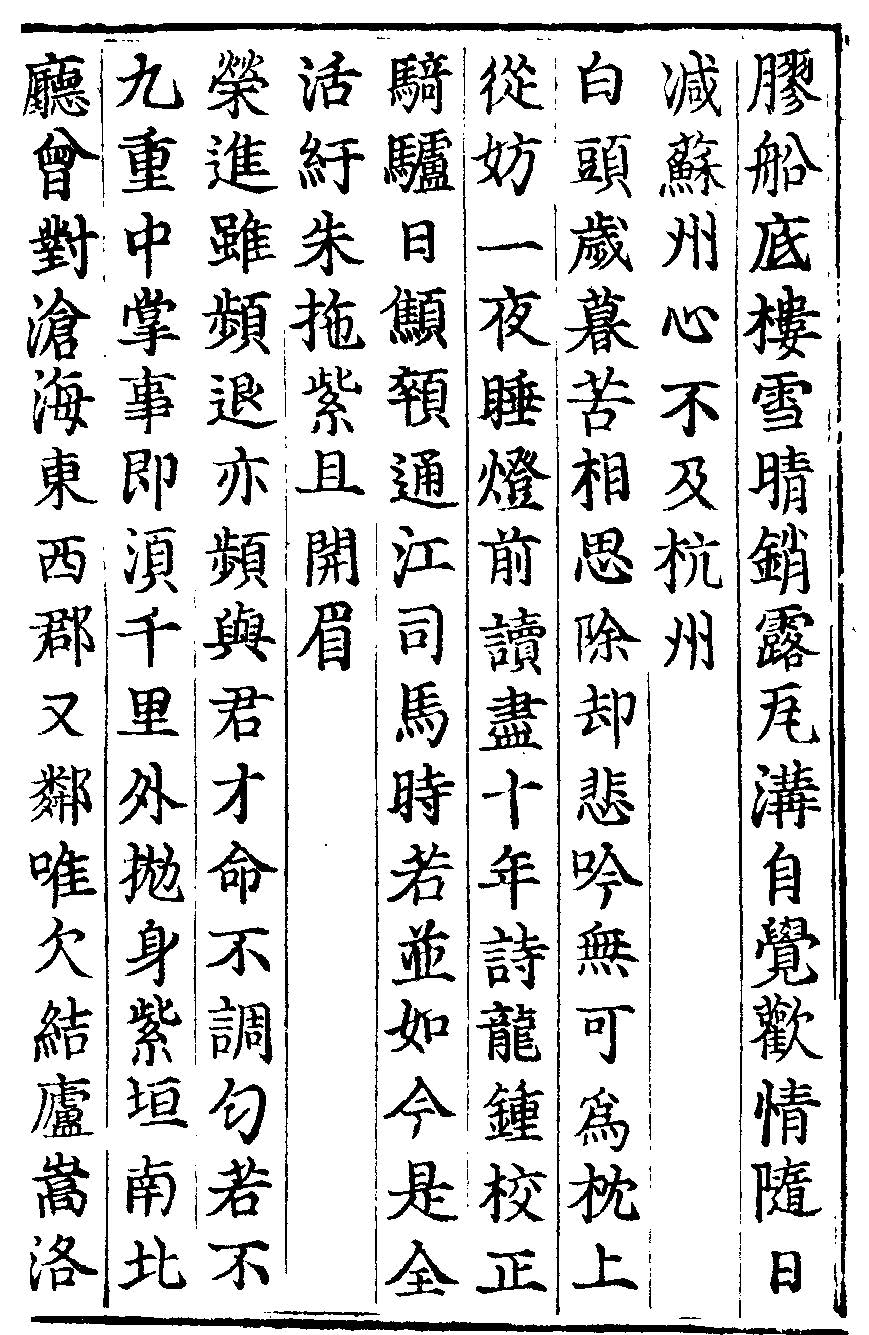 膠船底樓雪晴銷露瓦溝自覺歡情隨日
减蘇州心不及杭州
白頭歲暮苦相思除却悲吟無可爲枕上
從妨一夜睡燈前讀盡十年詩龍鍾校正
騎驢日顦顇通江司馬時若並如今是全
活紆朱拖紫且開眉
榮進雖頻退亦頻與君才命不調勻若不
九重中掌事即湏千里外抛身紫垣南北
廳曾對滄海東西郡又鄰唯欠結廬嵩洛